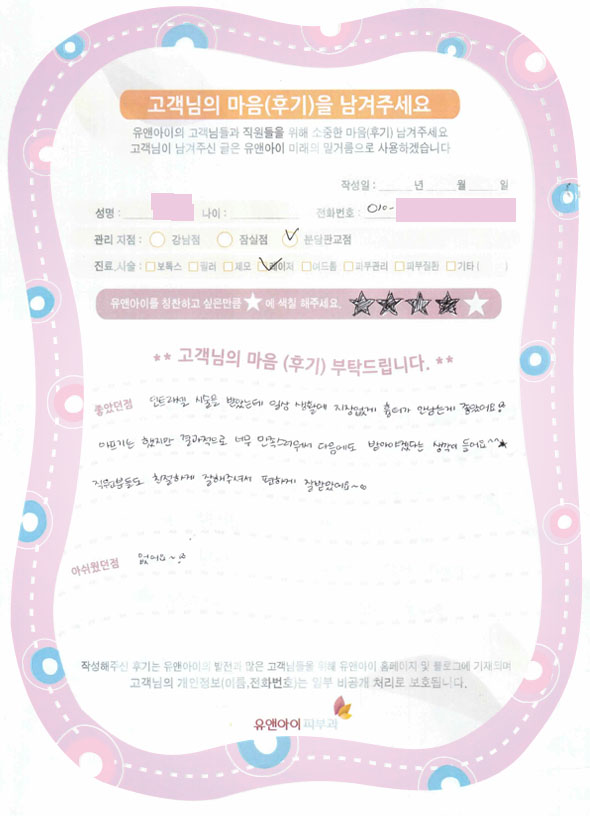 고객님의 마음(후기)을 남겨주세요
유앤아이의 고객님들과 직원들을 위해 소중한 마음(후기) 남겨주세요
고객님이 남겨주신 글은 유앤아이 미래의 밑거름으로 사용하겠습니다
작성일 : 년 월 일
성명 : 나이 : 전화번호 : 010-
관리 지점 : 강남점 잠실점 분당판교점
진료,시술 : 보톡스 필러 제모 레이저 여드름 피부관리 피부질환 기타 ( )
유앤아이를 칭찬하고 싶은만큼 ★ 에 색칠 해주세요.
★★ 고객님의 마음 (후기) 부탁드립니다. ★★
좋았던점 인트라셀 시술을 받았는데 일상 생활에 지장없게 흉터가 안남는게 좋았어요
아프기는 했지만 결과적으로 너무 만족스러워서 다음에도 받아야겠다는 생각이 들어요^^★
직원분들도 친절하게 잘해주셔서 편하게 잘받았어요~
아쉬웠던점 없어요~
작성해주신 후기는 유앤아이의 발전과 많은 고객님들을 위해 유앤아이 홈페이지 및 블로그에 기재되며
고객님의 개인정보(이름,전화번호)는 일부 비공개 처리로 보호됩니다.
유앤아이피부과